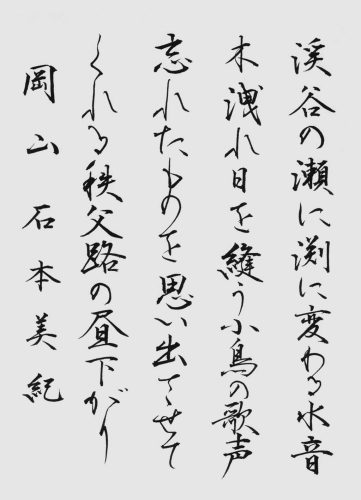 渓谷の瀬に渕に変わる水音
木洩れ日を縫う小鳥の歌声
忘れたものを思い出させて
くれる秩父路の昼下がり
岡山石本美紀